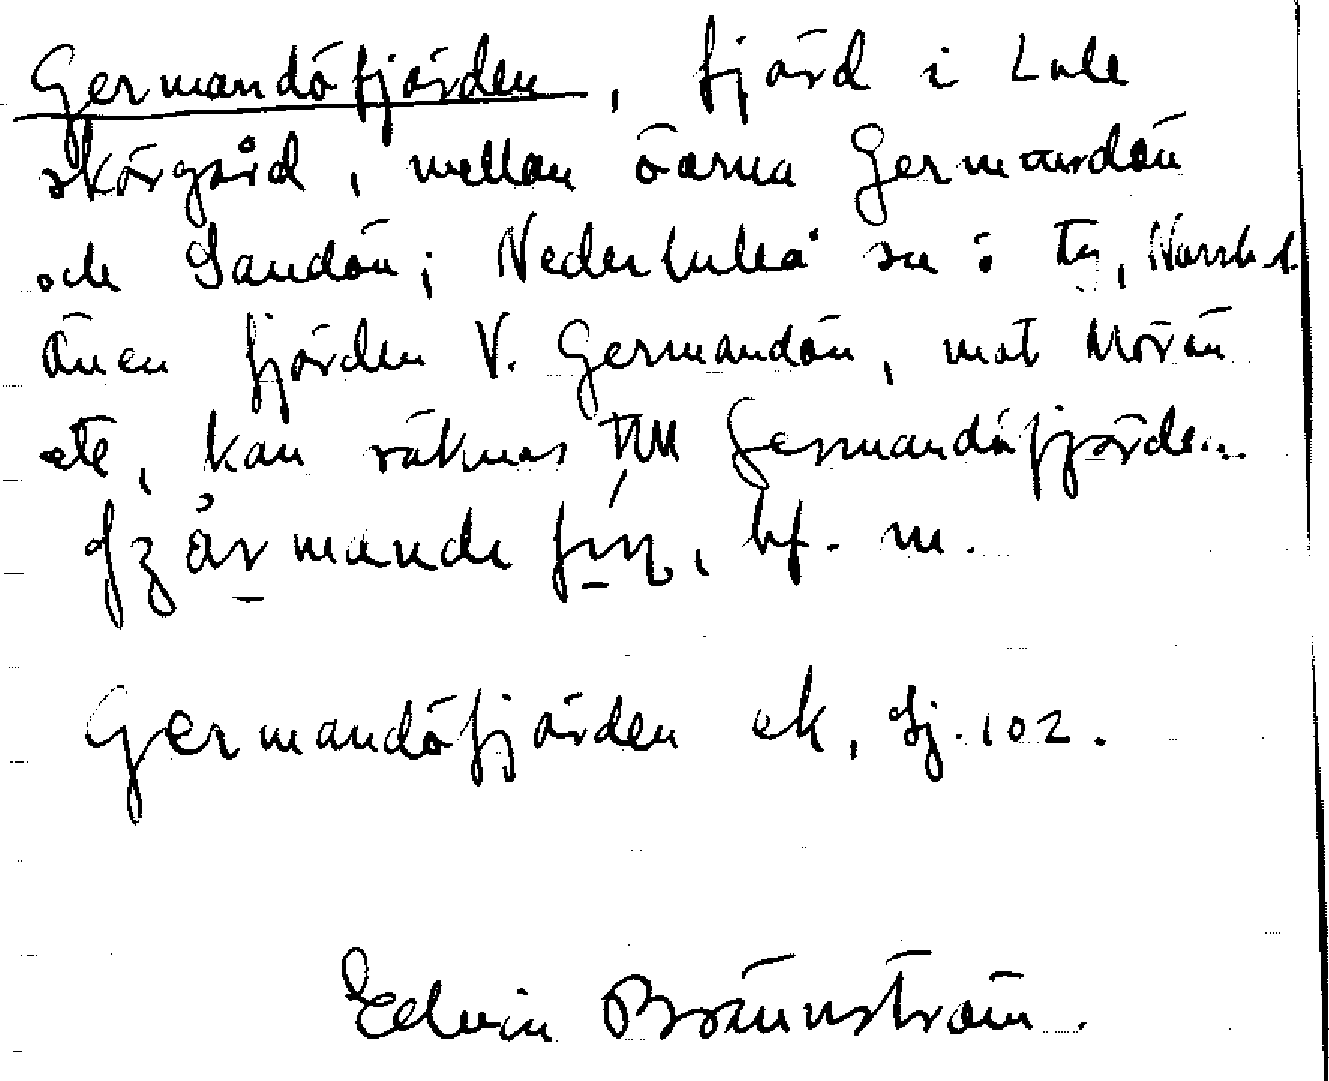 Germandöfjärden, fjärd i Lule
skärgård, mellan öarna Germandön
och Sandön; Nederluleå sn i
Även fjärden V. Germandön, mot Mörön
etc, kan räknas till Germandöfjärden.
bf. m.
Germandöfjärden ek, fj. 102.
Edvin Brännström.